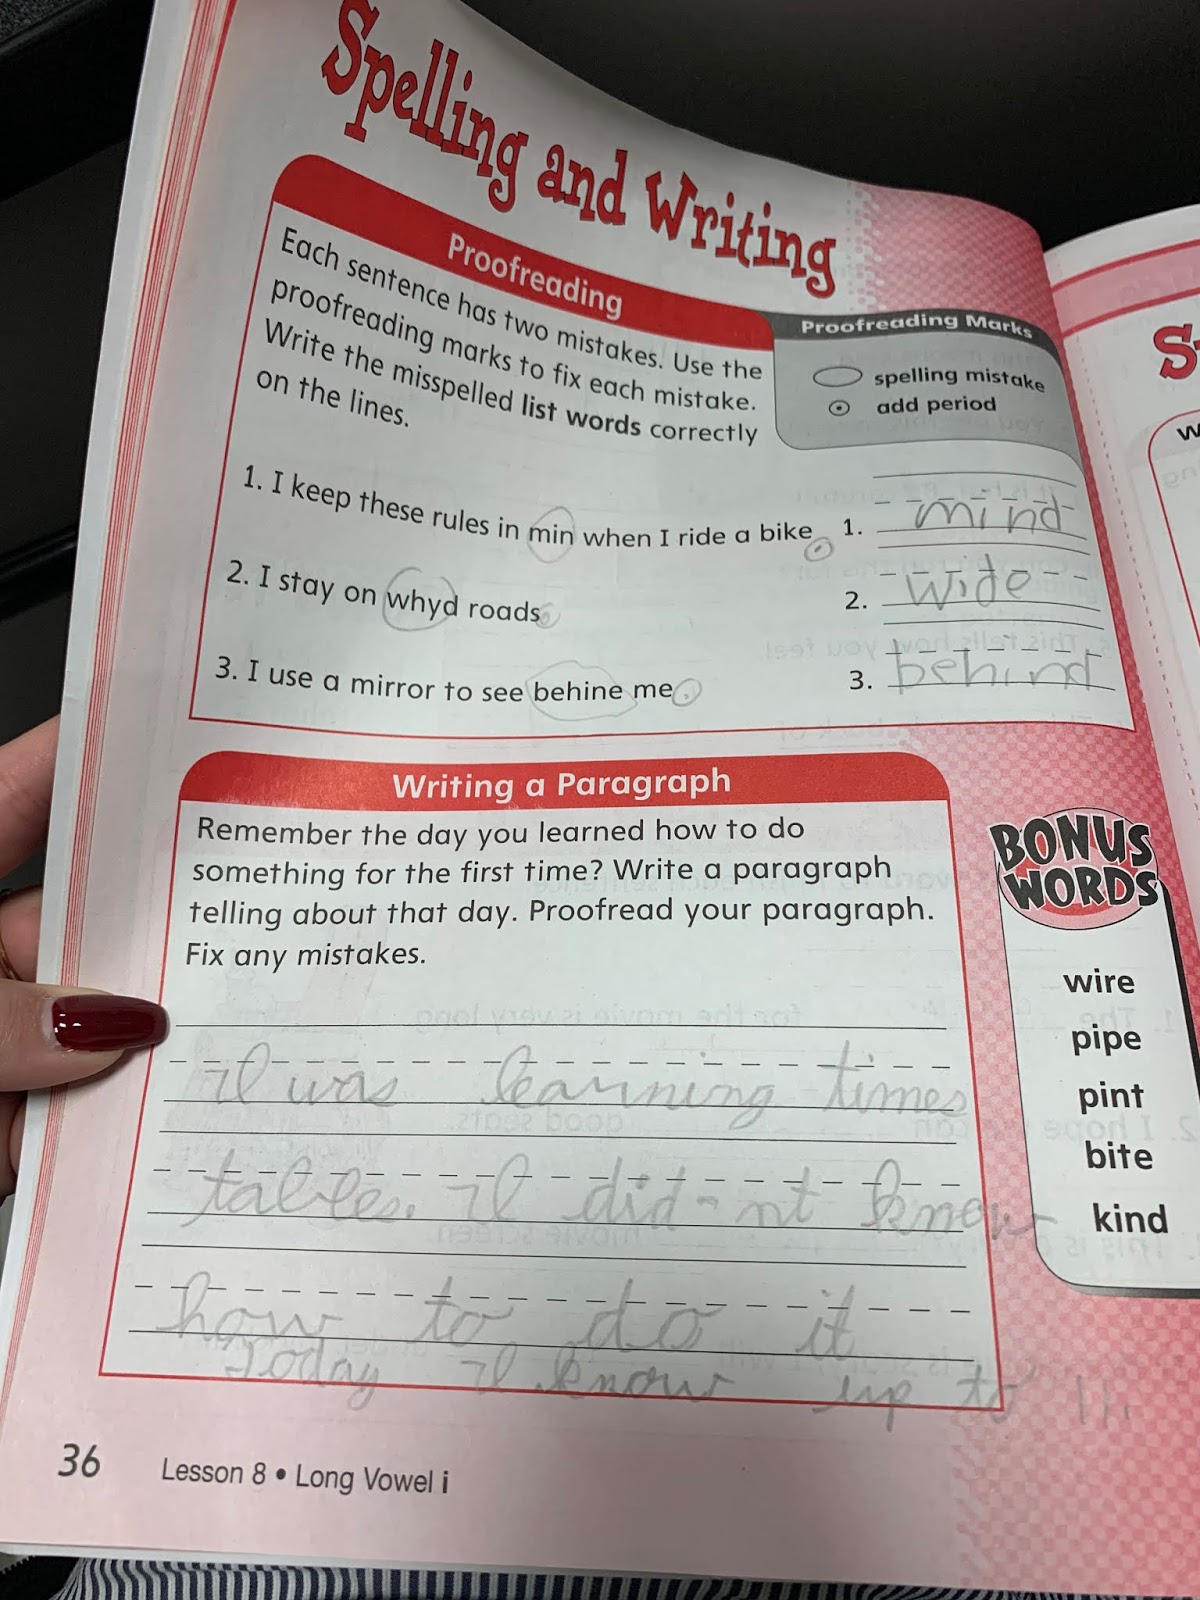 Spelling and Writing
Proofreading
Each sentence has two mistakes. Use the
proofreading marks to fix each mistake.
Write the misspelled list words correctly
on the lines.
Proofreading Marks
spelling mistake
add period
1. I keep these rules in min when I ride a bike
1. mind
2. I stay on whyd roads
2. wide
3. I use a mirror to see behine me
3. behind
Writing a Paragraph
Remember the day you learned how to do
something for the first time? Write a paragraph
telling about that day. Proofread your paragraph.
Fix any mistakes.
I was learning times
tables. I did-nt know
how to do it
Today I know up to 11.
BONUS
WORDS
wire
pipe
pint
bite
kind
36 Lesson 8 • Long Vowel i